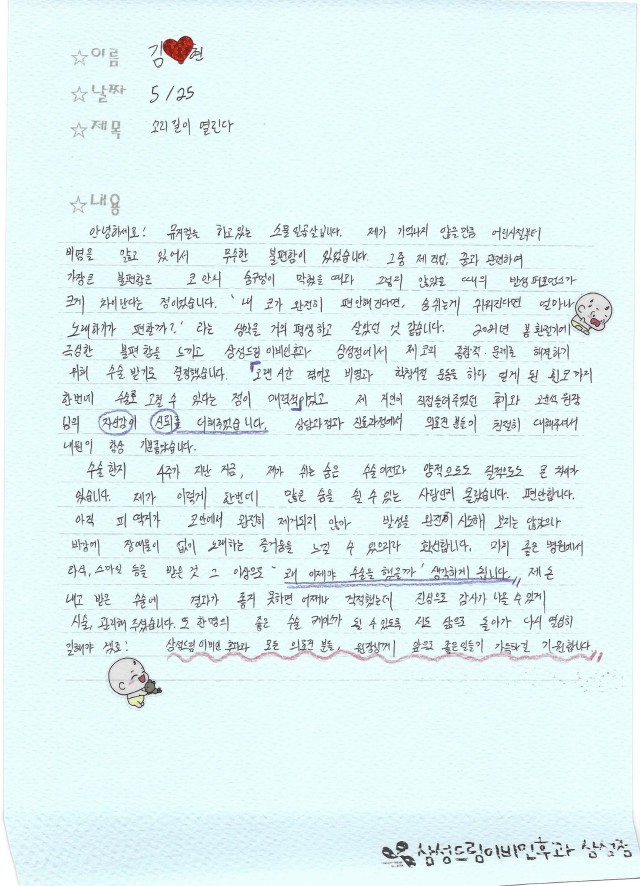 ☆이름 김 현
☆날짜 5/25
☆제목 소리길이 열린다
☆내용
안녕하세요! 뮤지컬을 하고있는 스물일곱살입니다. 제가 기억나지 않을만큼 어린시절부터
비염을 앓고 있어서 무수한 불편함이 있었습니다. 그중 제 직업, 꿈과 관련하여
가장큰 불편함은 코 안시 숨구멍이 막혔을 때와 그렇지 않았을 때의 발성 퍼포먼스가
크게 차이난다는 점이었습니다. '내 코가 완전히 편안해진다면, 숨쉬는게 쉬워진다면 얼마나
노래하기가 편할까?' 라는 생각을 거의 평생하고 살았던 것 같습니다. 2021년 봄 환절기에
극심한 불편함을 느끼고 삼성드림이비인후과 삼성점에서 제 코의 종합적 문제를 해결하기
위해 수술 받기로 결정했습니다. 「오랜시간 겪어온 비염과 학창시절 운동을 하다 얻게 된 휜코까지
한번에 수술로 고칠 수 있다는 점이 매력적」이었고 제 지인이 직접들려주었던 후기와 원장
님의 자신감이 신뢰를 더해주었습니다. 상담과 검사 진료과정에서 의료진분들이 친절히 대해주셔서
내원이 항상 기분좋았습니다.
수술한지 4주가 지난 지금, 제가 쉬는 숨은 수술이전과 양적으로도 질적으로도 큰 차이가
있습니다. 제가 이렇게 한번에 많은 숨을 쉴 수 있는 사람인지 몰랐습니다. 편안합니다.
아직 피 딱지가 코안에서 완전히 제거되지 않아 발성을 완전히 시도해 보지는 않았으나
비강에 장애물이 없이 노래하는 즐거움을 느낄 수 있으리라 확신합니다. 미리 좋은 병원에서
라식, 스마일 등을 받은것 그 이상으로 '왜 이제야 수술을 했을까' 생각하게 됩니다. 제 돈
내고 받은 수술에 결과가 좋지 못하면 어쩌나 걱정했는데 진심으로 감사가 나올 수 있게
시술, 관리해 주셨습니다. 또 한명의 좋은 수술 케이스가 될 수 있도록 저도 삶으로 돌아가 다시 열심히
일해야 겠죠! 삼성드림이비인후과 모든 의료진분들, 원장님께 앞으로 좋은일들이 가득하길 기원합니다
삼성드림이비인후과 삼성점